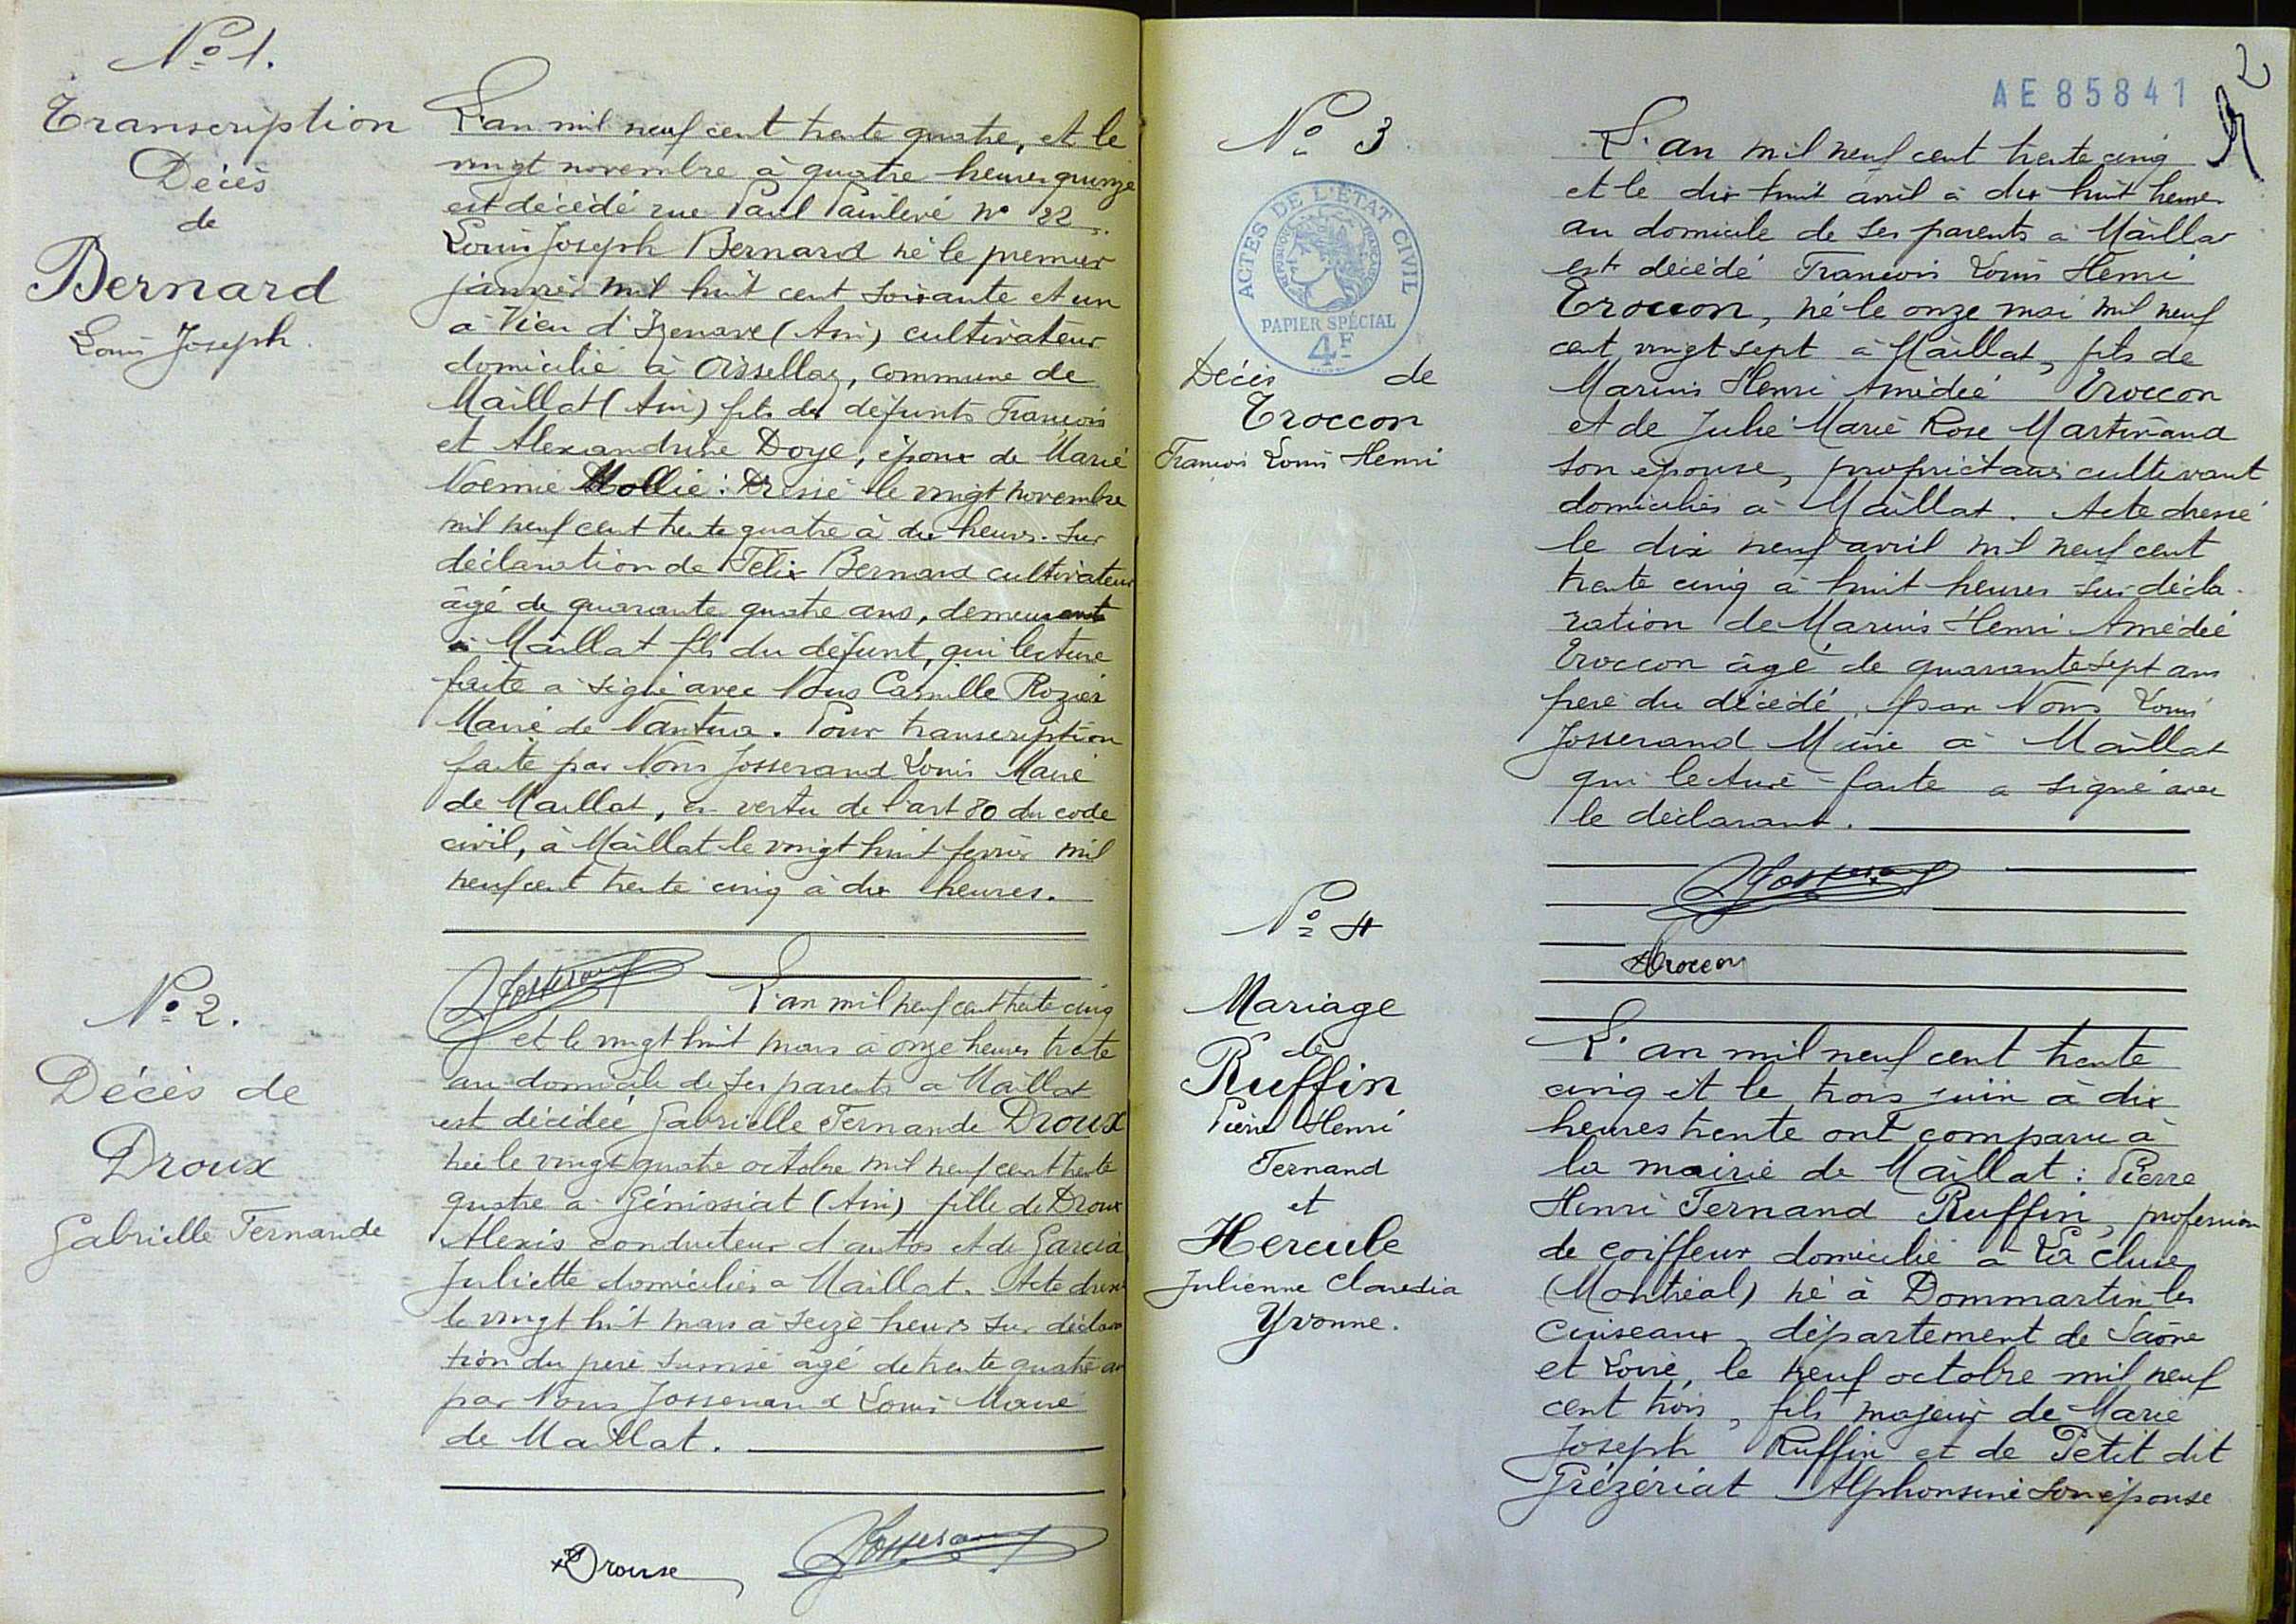 No 1.
Transcription
Décès
de
Bernard
Louis Joseph.
L'an mil neuf cent trente quatre, et le
vingt novembre à quatre heures quinze
est décédé rue Paul Painlevé no 22.
Louis Joseph Bernard né le premier
janvier mil huit cent soixante et un
à Vieu d'Izenave (Ain) cultivateur
domicilié à Oisselaz, commune de
Maillat (Ain) fils des défunts François
et Alexandrine Doye, époux de Marie
Noémie Mollie : Dressé le vingt novembre
mil neuf cent trente quatre à dix heures. Sur
déclaration de Félix Bernard cultivateur
âgé de quarante quatre ans, demeurant
à Maillat fils du défunt, qui lecture
faite a signé avec Nous Camille Rozier
Maire de Nantua. Pour transcription
faite par Nous Josserand Louis Maire
de Maillat, en vertu de l'art 80 du code
civil, à Maillat le vingt huit février mil
neuf cent trente cinq à dix heures.
Josserand
No 2.
Décès de
Droux
Gabrielle Fernande
L'an mil neuf cent trente cinq
et le vingt huit mars à onze heures trente
au domicile de ses parents à Maillat
est décédée Gabrielle Fernande Droux
née le vingt quatre octobre mil neuf cent trente
quatre à Génissiat (Ain) fille de Droux
Alexis conducteur d'autos et de Garcia
Juliette domiciliés à Maillat. Acte dressé
le vingt huit mars à seize heures sur déclara
tion du père susnommé âgé de trente quatre ans
par Nous Josserand Louis Maire
de Maillat.
Drouse
Josserand
2
AE 85841
No 3
ACTES DE L'ÉTAT CIVIL
RÉPUBLIQUE FRANÇAISE
PAPIER SPÉCIAL
4F
Décès de
Troccon
François Louis Henri
L'an mil neuf cent trente cinq
et le dix huit avril à dix huit heures
au domicile de ses parents à Maillat
est décédé François Louis Henri
Troccon, né le onze mai mil neuf
cent vingt sept à Maillat, fils de
Marius Henri Amédée Troccon
et de Julie Marie Rose Martinand
son épouse, propriétaires cultivant
domiciliés à Maillat. Acte dressé
le dix neuf avril mil neuf cent
trente cinq à huit heures sur décla-
ration de Marius Henri Amédée
Troccon âgé de quarante sept ans
père du décédé, par Nous Louis
Josserand Maire à Maillat
qui lecture faite a signé avec
le déclarant.
Josserand
Troccon
No 4
Mariage
de
Ruffin
Pierre Henri
Fernand
et
Hercule
Julienne Claudia
Yvonne.
L'an mil neuf cent trente
cinq et le trois juin à dix
heures trente ont comparu à
la mairie de Maillat : Pierre
Henri Fernand Ruffin, profession
de coiffeur domicilié à La Cluse
(Montréal) né à Dommartin les
Cuiseaux, département de Saône
et Loire, le neuf octobre mil neuf
cent trois, fils majeur de Marie
Joseph Ruffin et de Petit dit
Grézériat Alphonsine son épouse